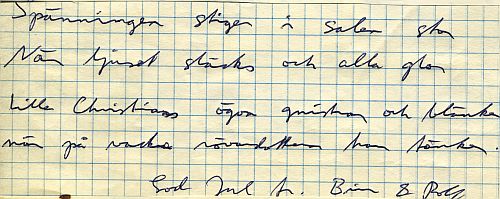 Spänningen stiger i salen stor
När ljuset släcks och alla glor
Lilla Christians ögon gnistra och blänka
när på vackra rövardottern han tänker.
God Jul fr. Bim & Rolf